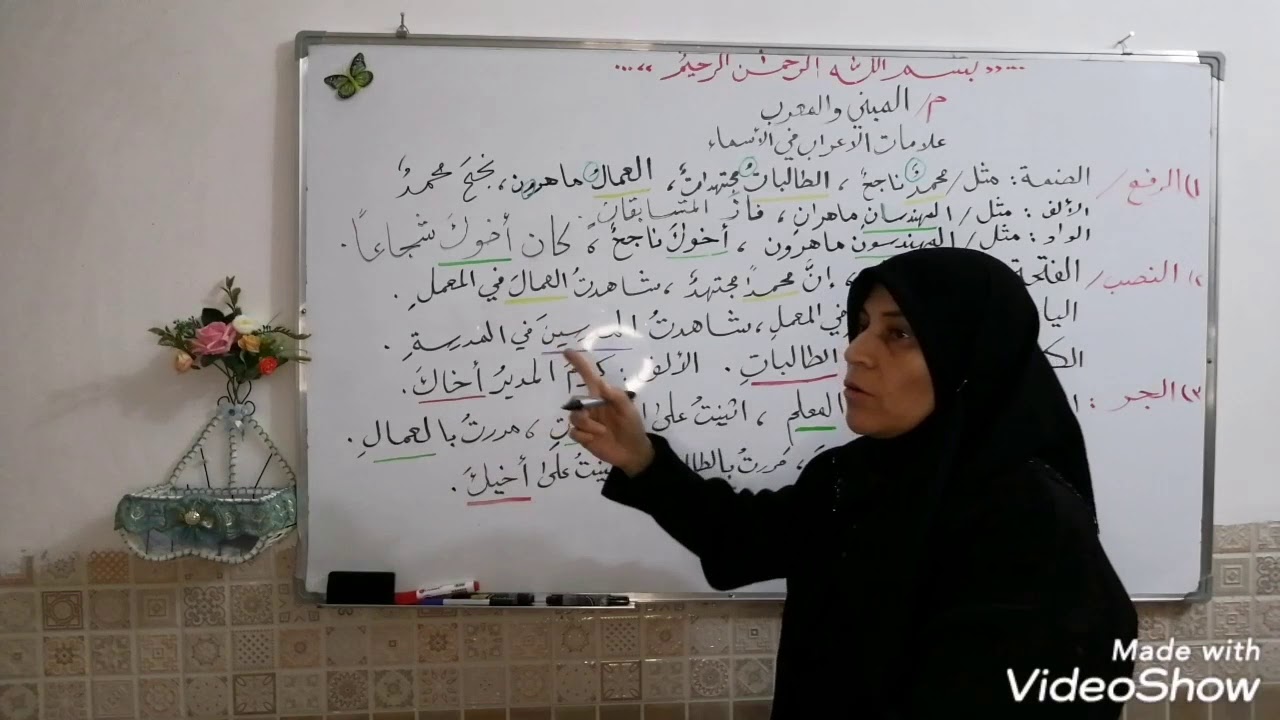 ...»» بسم الله الرحمٰن الرحيم ««...
م/ المبني والمعرب
علامات الاعراب في الأسماء
١) الرفع/ الضمة: مثل/ محمدٌ ناجحٌ، الطالباتُ مجتهداتٌ، العمالُ ماهرون، نجحَ محمدٌ
الألف: مثل/ المهندسانِ ماهرانِ، فازَ المتسابقانِ.
الواو: مثل/ المهندسونَ ماهرون، أخوكَ ناجحٌ، كان أخوكَ شجاعاً.
٢) النصب/ الفتحة ، إنَّ محمداً مجتهدٌ، شاهدتُ العمالَ في المعملِ.
اليا في المعملِ، شاهدتُ المدرسينَ في المدرسةِ.
الك الطالباتِ. الألف: كرّمَ المديرُ أخاكَ.
٣) الجر: المعلم، اثنيتُ على ، مررتُ بالعمالِ.
، مررتُ على أخيكَ.
Made with
VideoShow